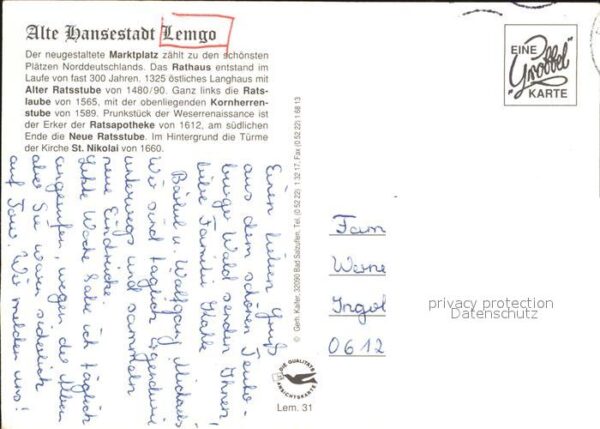 Alte Hansestadt Lemgo
Der neugestaltete Marktplatz zählt zu den schönsten
Plätzen Norddeutschlands. Das Rathaus entstand im
Laufe von fast 300 Jahren. 1325 östliches Langhaus mit
Alter Ratsstube von 1480/90. Ganz links die Rats-
laube von 1565, mit der obenliegenden Kornherren-
stube von 1589. Prunkstück der Weserrenaissance ist
der Erker der Ratsapotheke von 1612, am südlichen
Ende die Neue Ratsstube. Im Hintergrund die Türme
der Kirche St. Nikolai von 1660.
Einen lieben Gruß
aus dem schönen Teuto-
burger Wald senden Ihnen,
liebe Familie
Bärbel u. Wolfgang
Wir sind täglich irgendwie
unterwegs und sammeln
neue Eindrücke.
Letzte Woche habe ich täglich
angerufen, wegen der
aber Sie waren sicherlich
auf Tour. Wir melden uns!
© Gerh. Kaller, 32090 Bad Salzuflen, Tel. (0 52 22) 1 32 17, Fax (0 52 22) 1 68 13
EINE
"Grobbel"
KARTE
Fam
Werne
Ingol
0612
privacy protection
Datenschutz
DIE QUALITÄTS
ANSICHTSKARTE
Lem. 31